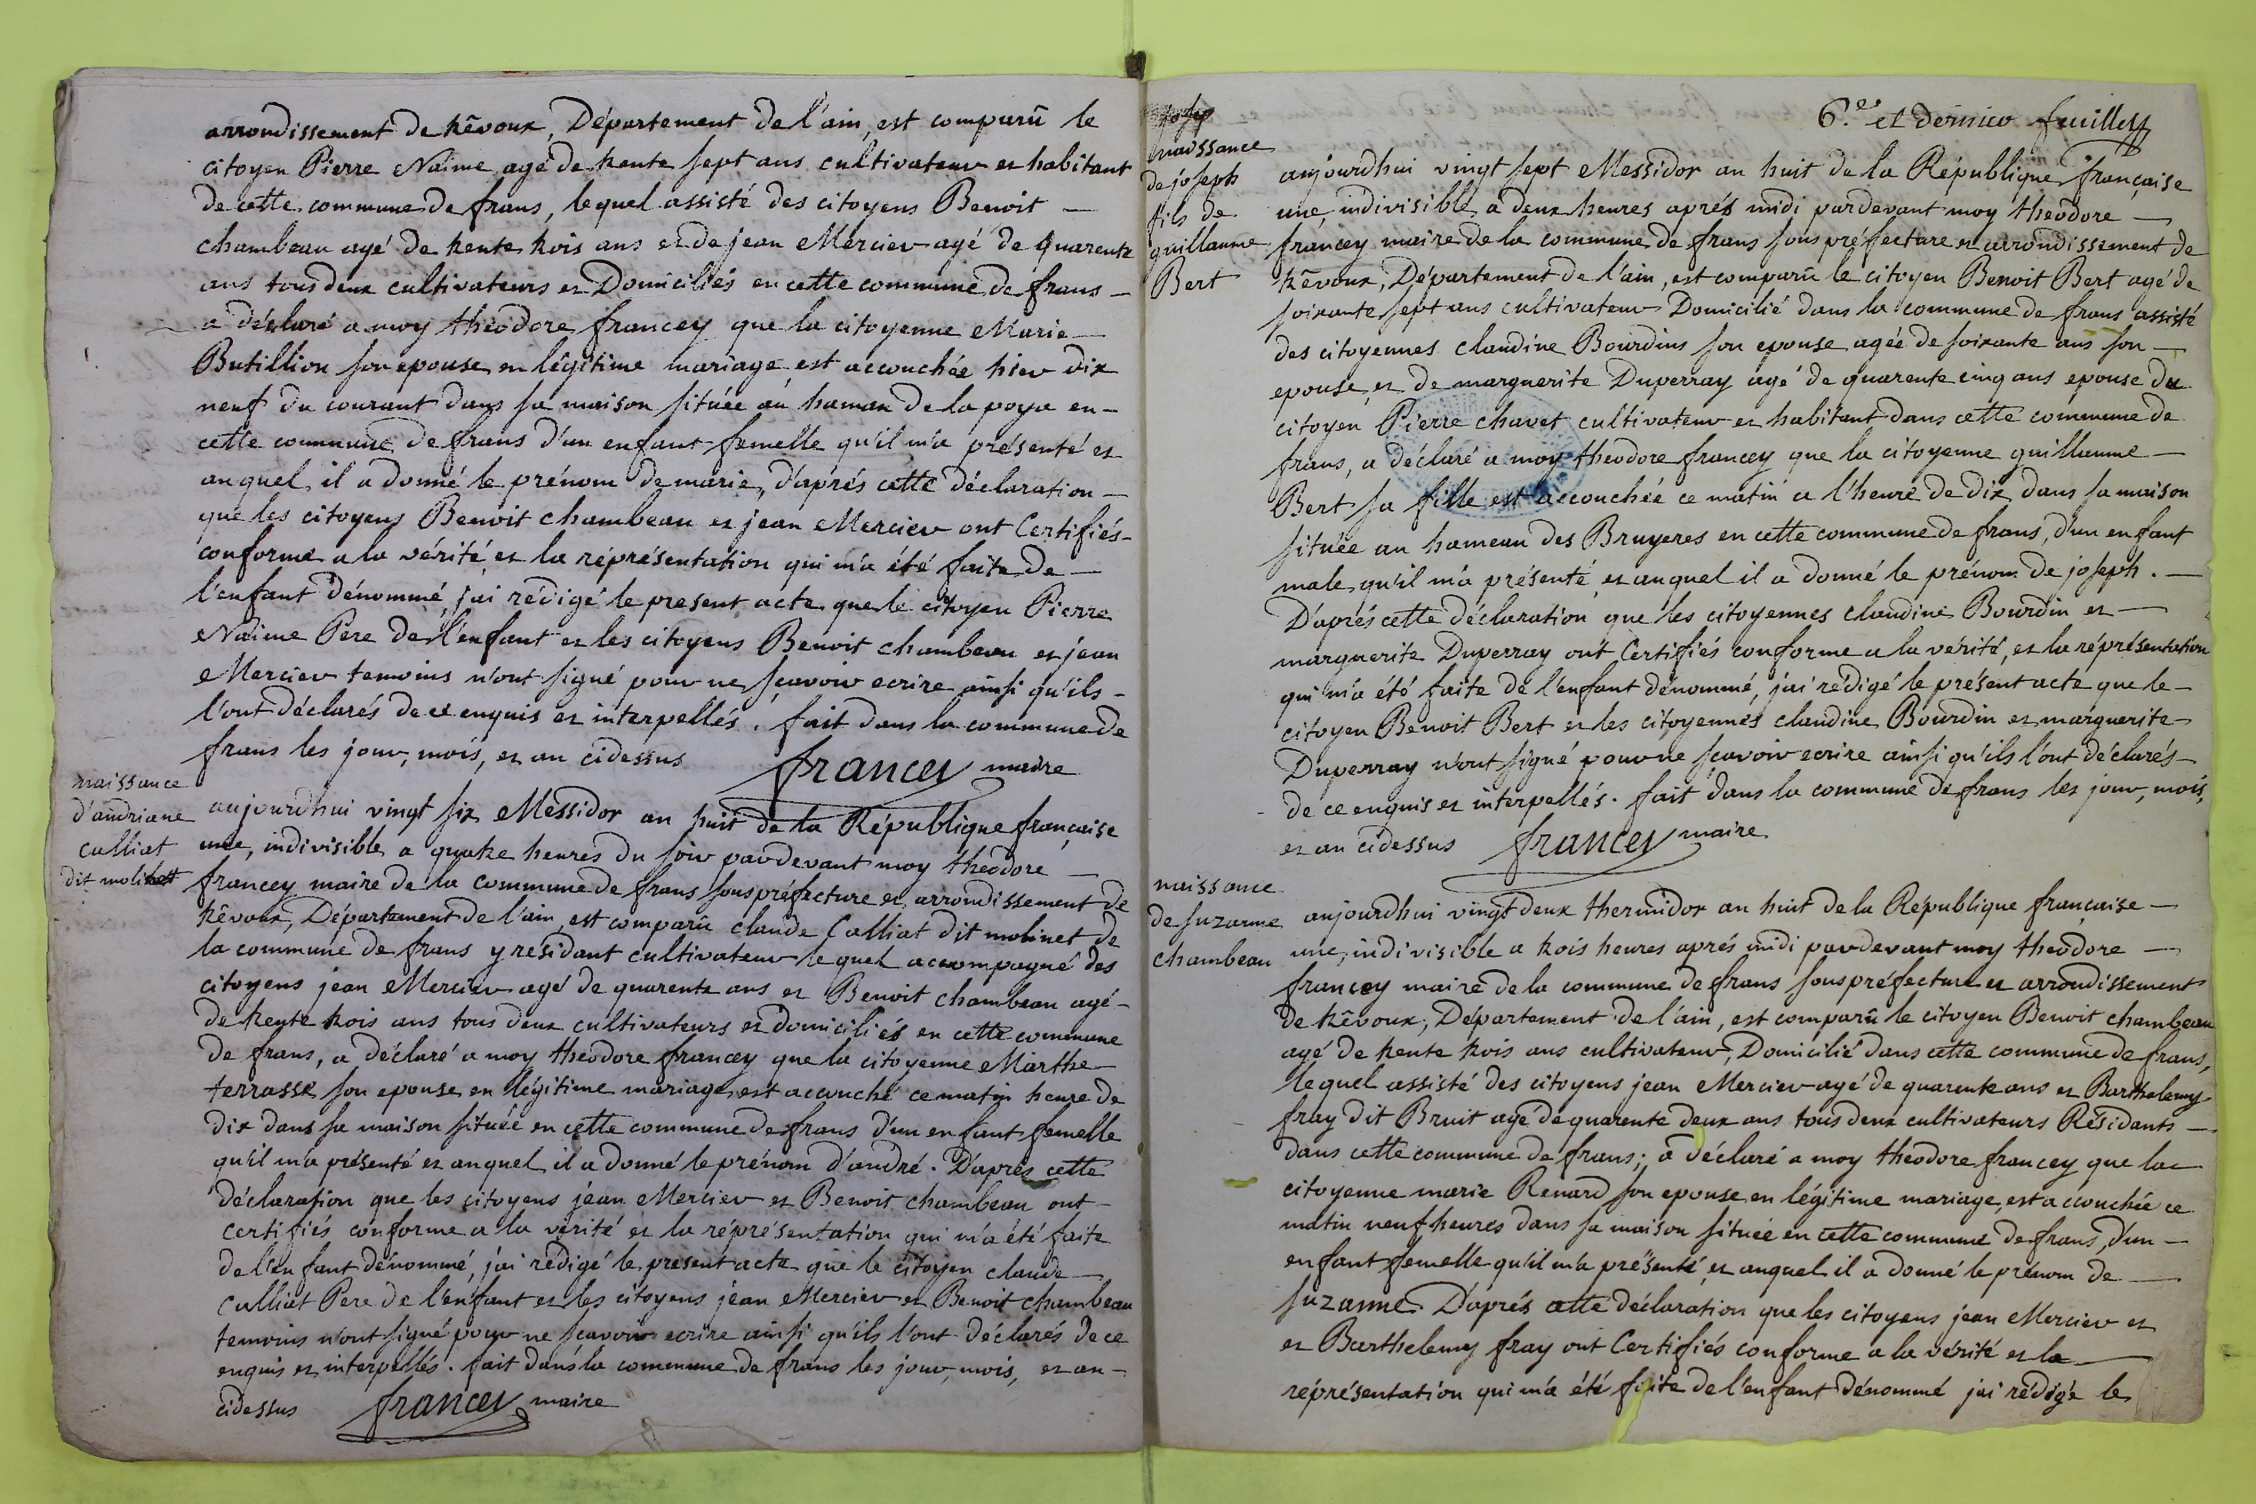 arrondissement de trêvoux, Département de l'ain, est comparû le
citoyen Pierre Naime agé de trente sept ans cultivateur et habitant
de cette commune de frans, lequel assisté des citoyens Benoit —
chambeau agé de trente trois ans et de jean Mercier agé de quarente
ans tous deux cultivateurs et Domiciliés en cette commune de frans —
a déclaré a moy théodore francey que la citoyenne Marie —
Butillion son epouse en légitime mariage est accouchée hier dix
neuf du courant dans sa maison située au haman de la poya en -
cette commune de frans d'un enfant femelle qu'il m'a présenté et
auquel il a donné le prénom de marie, d'aprés cette déclaration —
que les citoyens Benoit chambeau et jean Mercier ont Certifiés -
conforme a la vérité et la réprésentation qui m'a été faite de —
l'enfant dénommé, j'ai rédigé le present acte que le citoyen Pierre
Naime Pere de l'enfant et les citoyens Benoit chambeau et jean
Mercier temoins n'ont signé pour ne sçavoir ecrire ainsi qu'ils -
l'ont déclarés de ce enquis et interpellés. fait dans la commune de
frans les jour, mois, et an cidessus francey maire
naissance
d'andriane
calliat
dit molinet
aujourdhui vingt six Messidor an huit de la République française
une, indivisible a quatre heures du soir pardevant moy théodore —
francey maire de la commune de frans souspréfecture et arrondissement de
trêvoux, Département de l'ain, est comparû claude Calliat dit molinet de
la commune de frans y résidant cultivateur lequel accompagné des
citoyens jean Mercier agé de quarente ans et Benoit chambeau agé -
de trente trois ans tous deux cultivateurs et domiciliés en cette commune
de frans, a déclaré a moy théodore francey que la citoyenne Marthe
terrasse son epouse en légitime mariage est accouché ce matin heure de
dix dans sa maison située en cette commune de frans d'un enfant femelle
qu'il m'a présenté et auquel il a donné le prénom d'andré. D'aprés cette
déclaration que les citoyens jean Mercier et Benoit chambeau ont -
certifiés conforme a la vérité et la réprésentation qui m'a été faite
de l'enfant dénommé, j'ai rédigé le present acte que le citoyen claude —
Calliat Pere de l'enfant et les citoyens jean Mercier et Benoit chambeau
temoins n'ont signé pour ne sçavoir ecrire ainsi qu'ils l'ont déclarés de ce
enquis et interpellés. fait dans la commune de frans les jour, mois, et an -
cidessus francey maire
6.e et dernier feuillet
naissance
de joseph
fils de
guillaume
Bert
aujourdhui vingt sept Messidor an huit de la République française
une, indivisible a deux heures aprés midi pardevant moy théodore —
francey maire de la commune de frans sous préfecture et arrondissement de
trêvoux, Département de l'ain, est comparû le citoyen Benoit Bert agé de
soixante sept ans cultivateur Domicilié dans la commune de frans assisté
des citoyennes claudine Bourdins son epouse agée de soixante ans son —
epouse, et de marguerite Duperray agé de quarente cinq ans epouse du
citoyen Pierre chavet cultivateur et habitant dans cette commune de
frans, a déclaré a moy théodore francey que la citoyenne guillaume —
Bert sa fille est accouchée ce matin a l'heure de dix dans sa maison
située au hameau des Bruyeres en cette commune de frans, d'un enfant
male, qu'il m'a présenté et auquel il a donné le prénom de joseph. —
D'aprés cette déclaration que les citoyennes claudine Bourdin et —
marguerite Duperray ont Certifiés conforme a la vérité, et la réprésentation
qui m'a été faite de l'enfant dénommé, j'ai rédigé le présent acte que le -
citoyen Benoit Bert et les citoyennes claudine Bourdin et marguerite -
Duperray n'ont signé pour ne sçavoir ecrire ainsi qu'ils l'ont déclarés -
de ce enquis et interpellés. fait dans la commune de frans les jour, mois,
et an cidessus francey maire
naissance
de suzanne
chambeau
aujourdhui vingt deux thermidor an huit de la République française —
une, indivisible a trois heures aprés midi pardevant moy théodore —
francey maire de la commune de frans souspréfecture et arrondissement
de trêvoux, Département de l'ain, est comparû le citoyen Benoit chambeau
agé de trente trois ans cultivateur, Domicilié dans cette commune de frans,
lequel assisté des citoyens jean Mercier agé de quarente ans et Barthelemy
fray dit Bruit agé de quarente deux ans tous deux cultivateurs Résidants —
dans cette commune de frans; a déclaré a moy théodore francey que la
citoyenne marie Renard son epouse en légitime mariage, est accouchée ce
matin neuf heures dans sa maison située en cette commune de frans, d'un —
enfant femelle qu'il m'a présenté, et auquel il a donné le prénom de —
suzanne. D'aprés cette déclaration que les citoyens jean Mercier et
et Barthelemy fray ont Certifiés conforme a la vérité et la —
réprésentation qui m'a été faite de l'enfant dénommé j'ai rédigé le